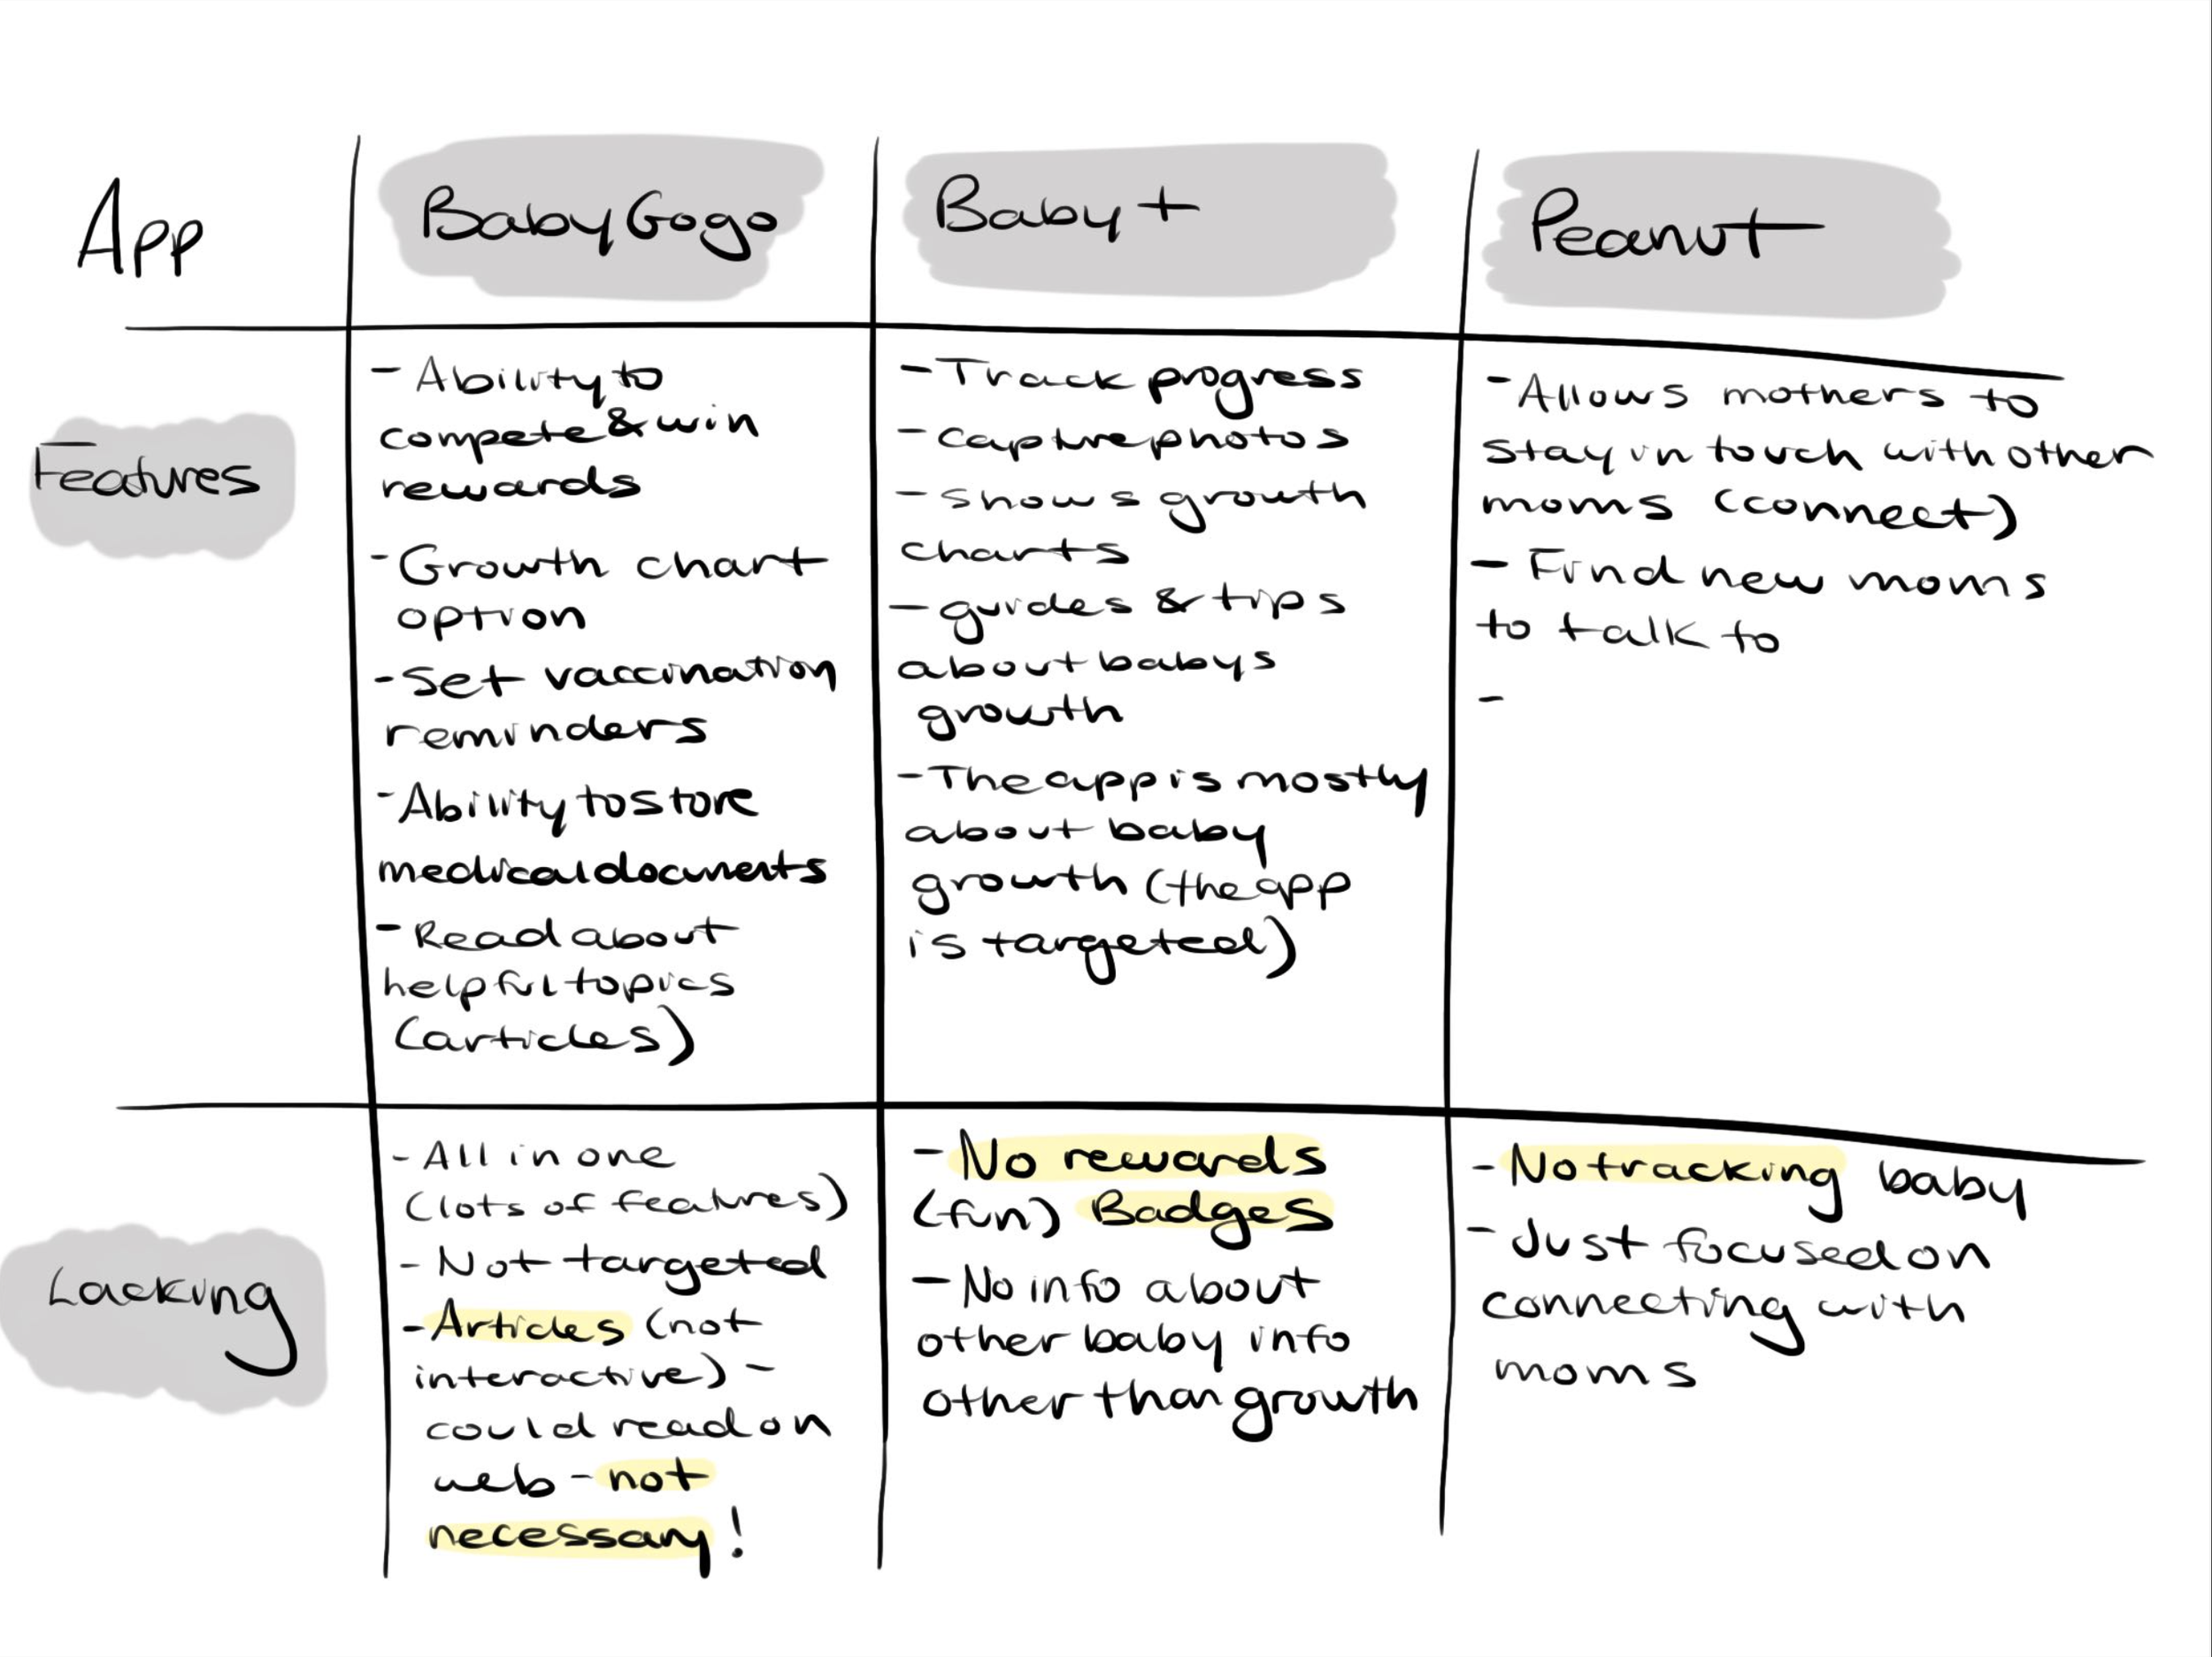 App
BabyGogo
Baby+
Peanut
Features
- Ability to
compete & win
rewards
- Growth chart
option
- Set vaccination
reminders
- Ability to store
medical documents
- Read about
helpful topics
(articles)
- Track progress
- capture photos
- shows growth
charts
- guides & tips
about babys
growth
- The app is mostly
about baby
growth (the app
is targeted)
- Allows mothers to
stay in touch with other
moms (connect)
- Find new moms
to talk to
-
Lacking
- All in one
(lots of features)
- Not targeted
- Articles (not
interactive) -
could read on
web - not
necessary!
- No rewards
(fun) Badges
- No info about
other baby info
other than growth
- No tracking baby
- Just focused on
connecting with
moms